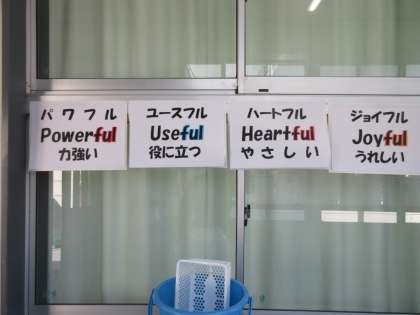 パワフル
Powerful
力強い
ユースフル
Useful
役に立つ
ハートフル
Heartful
やさしい
ジョイフル
Joyful
うれしい